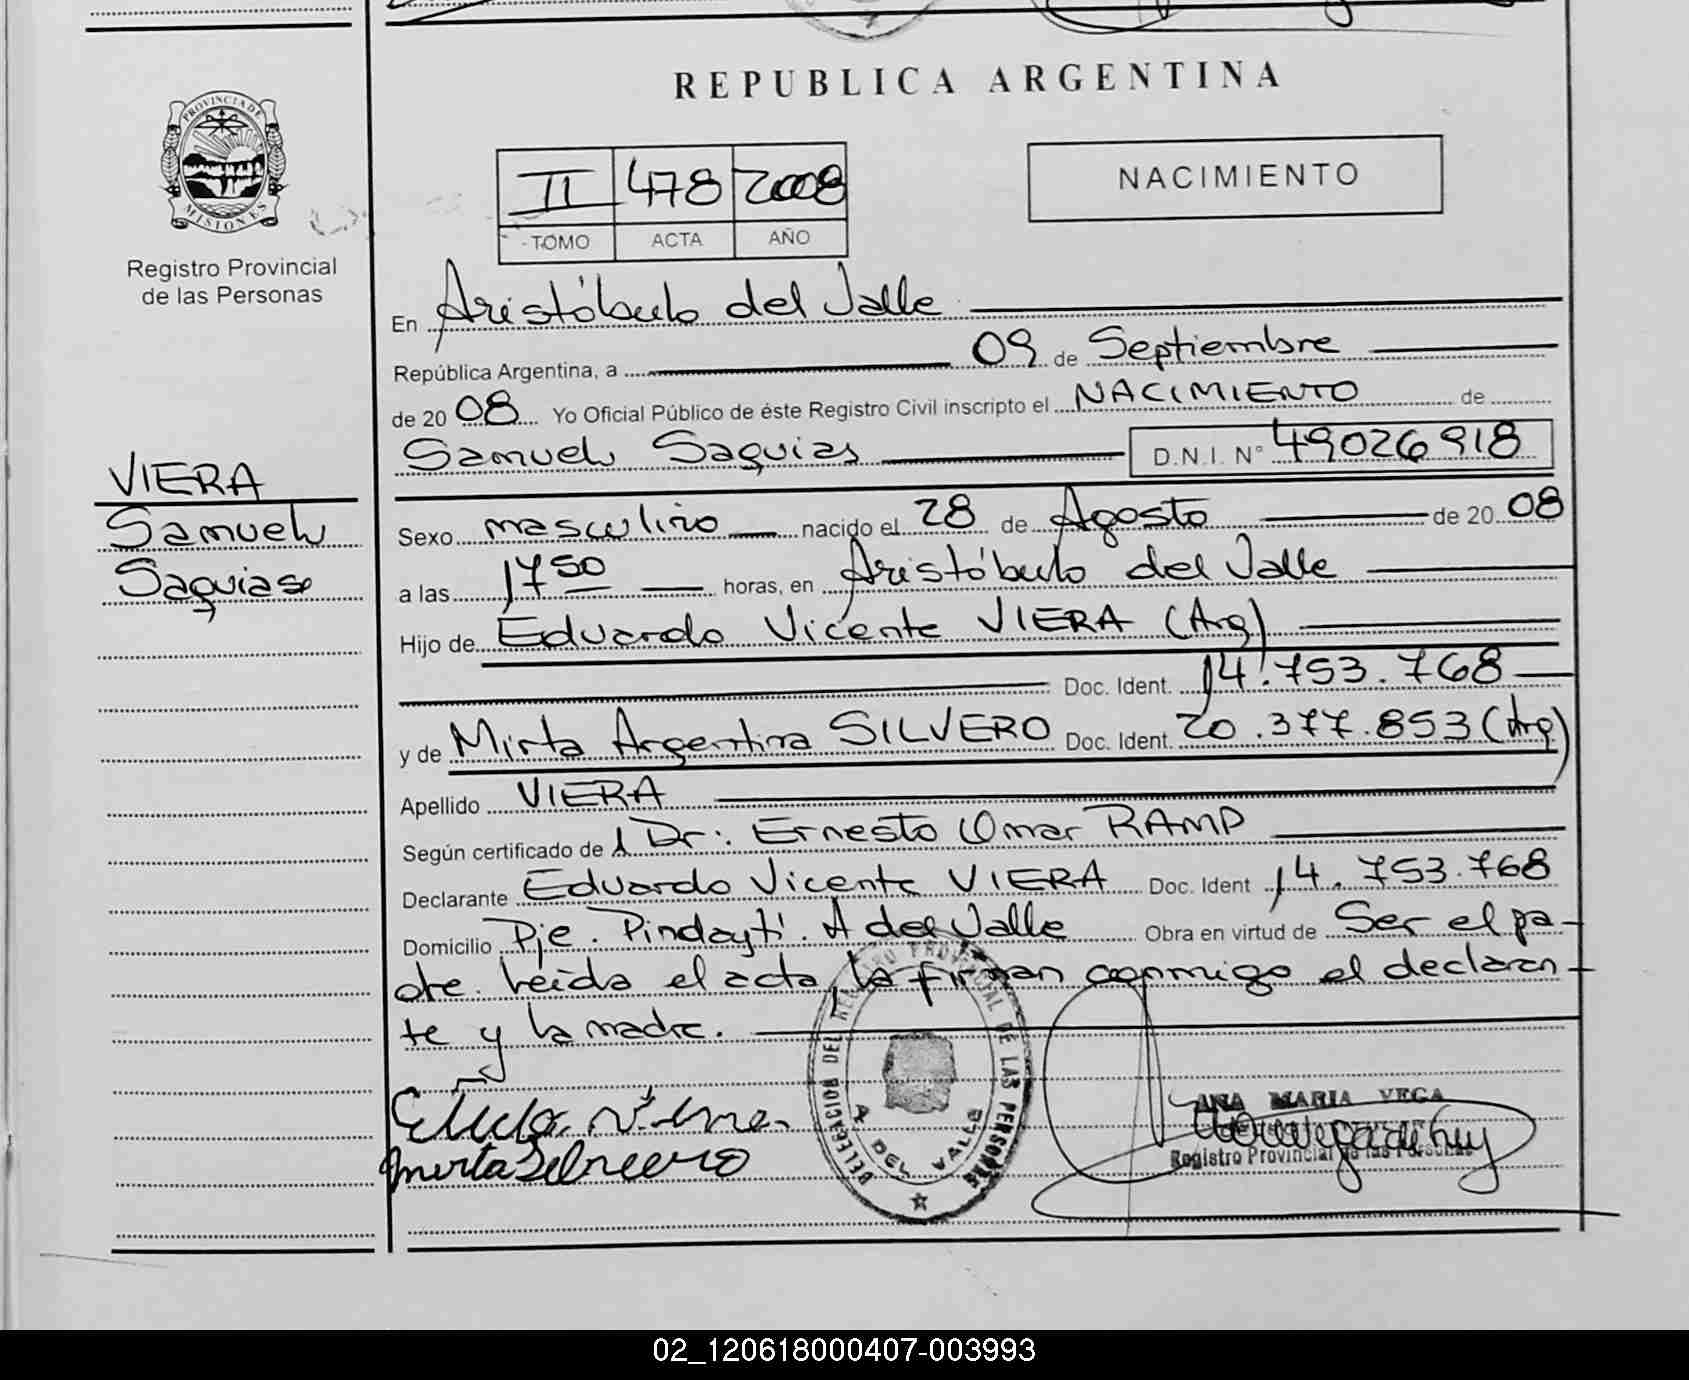 REPUBLICA ARGENTINA
PROVINCIA DE
MISIONES
Registro Provincial
de las Personas
II 478 2008
TOMO ACTA AÑO
NACIMIENTO
En Aristóbulo del Valle
República Argentina, a 09 de Septiembre
de 20 08 Yo Oficial Público de éste Registro Civil inscripto el NACIMIENTO de
Samuel Saquias D.N.I. N° 49026918
VIERA
Samuel
Saquias
Sexo masculino nacido el 28 de Agosto de 20 08
a las 17 50 horas, en Aristóbulo del Valle
Hijo de Eduardo Vicente VIERA (Arg)
Doc. Ident. 14.753.768
y de Mirta Argentina SILVERO Doc. Ident. 20.377.853 (Arg)
Apellido VIERA
Según certificado de Dr: Ernesto Omar RAMP
Declarante Eduardo Vicente VIERA Doc. Ident 14.753.768
Domicilio Pje. Pindaytí. A del Valle Obra en virtud de Ser el pa-
dre. Leída el acta, la firman conmigo el declaran-
te y la madre.
DELEGACION DEL REGISTRO PROVINCIAL DE LAS PERSONAS
A DEL VALLE
ANA MARIA VEGA
Registro Provincial de las Personas
02_120618000407-003993